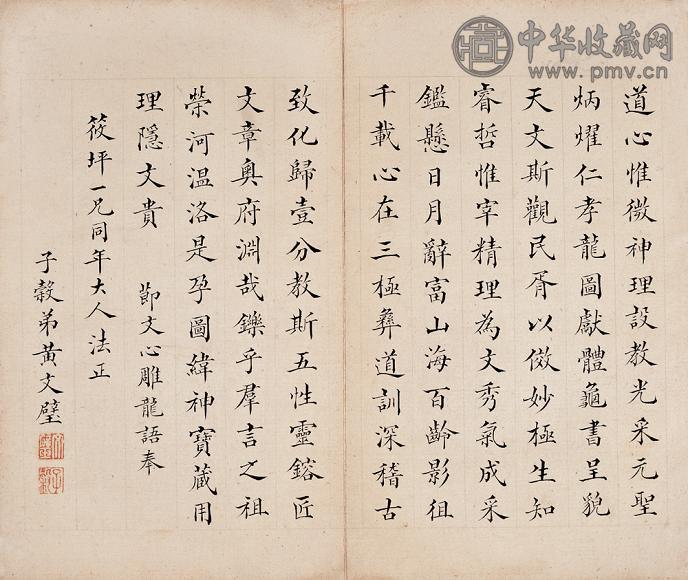 道心惟微神理設教光采元聖
炳燿仁孝龍圖獻體龜書呈貌
天文斯觀民胥以傚妙極生知
睿哲惟宰精理為文秀氣成采
鑑懸日月辭富山海百齡影徂
千載心在三極彝道訓深稽古
致化歸壹分教斯五性靈鎔匠
文章奧府淵哉鑠乎羣言之祖
榮河温洛是孕圖緯神寶藏用
理隱文貴 節文心雕龍語奉
筱坪一兄同年大人法正
子穀弟黃文璧
中华收藏网
www.pmv.cn